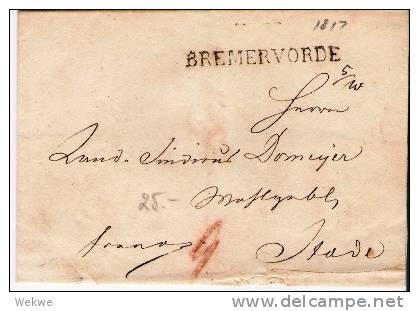 1817
BREMERVORDE
5/W
Herrn
Land-Sindicus Domeyer
Wohlgebl
25.-
franco
Stade
Wekwe
delcampe.net